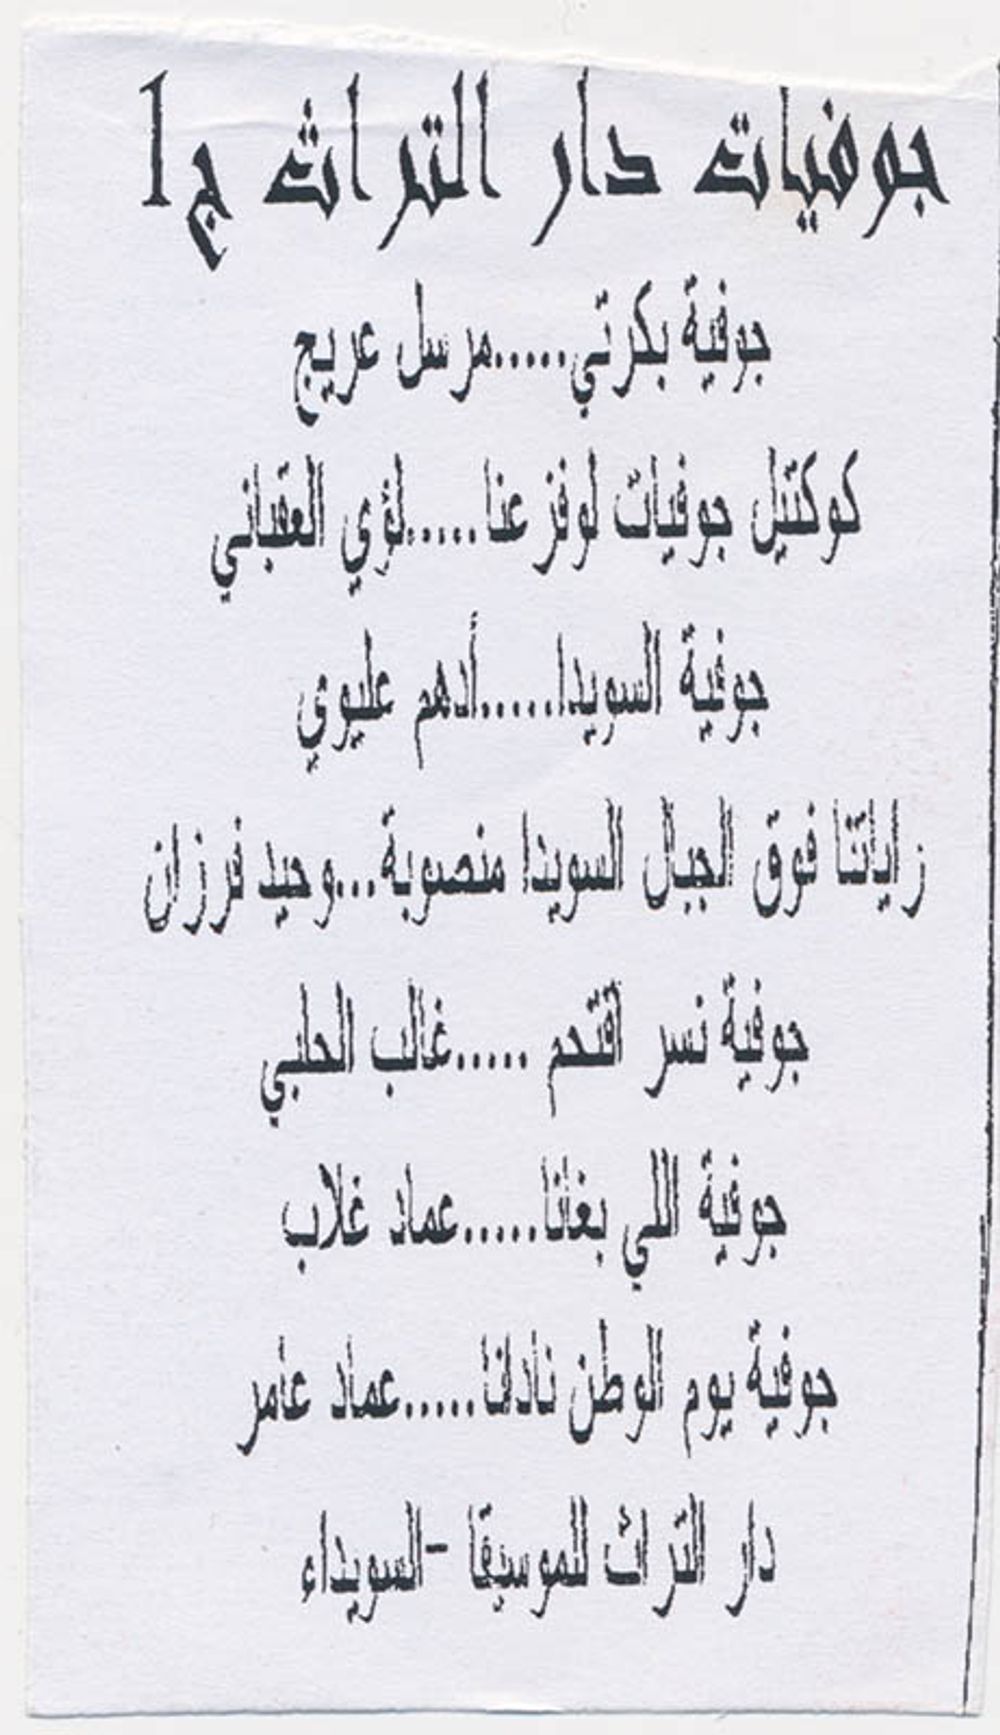 جوفيات دار التراث ج1
جوفية بكرتي.....مرسل عريج
كوكتيل جوفيات لوفز عنا.....لؤي العقباني
جوفية السويدا.....أدهم عليوي
زاياتنا فوق الجبال السويدا منصوبة...وحيد فرزان
جوفية نسر اقتحم .....غالب الحلبي
جوفية اللي بغانا.....عماد غلاب
جوفية يوم الوطن نادانا.....عماد عامر
دار التراث للموسيقا -السويداء